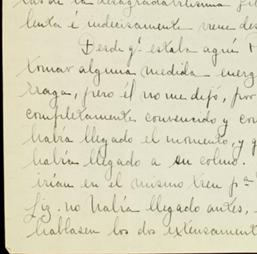 tos de la desagradabilísima
lenta e indecisamente viene des
Desde qe estaba aquí
tomar alguna medida energ
rraga, pero él no me dejó, por
completamente convencido y con
había llegado el momento, y q
había llegado a su colmo.
irían en el mismo tren pª
Liz. no había llegado antes,
hablasen los dos extensament